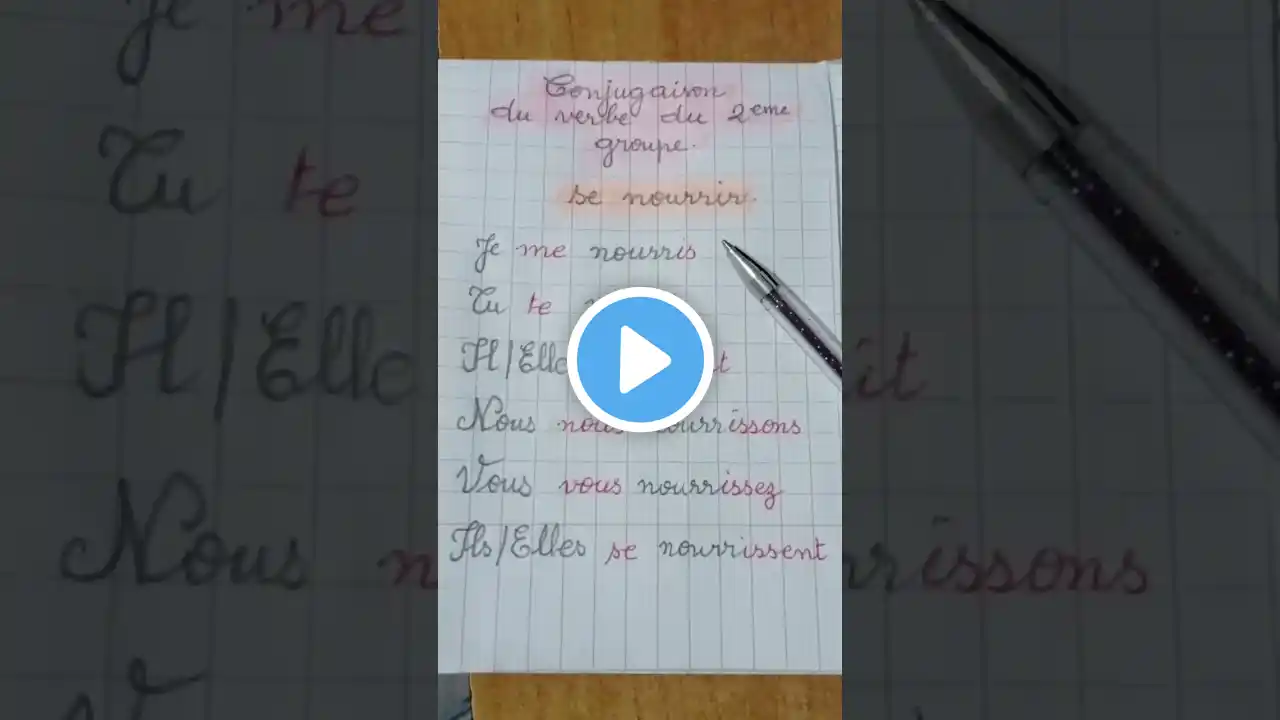 Conjugaison
du verbe du 2eme
groupe.
se nourrir.
Je me nourris
Tu te
Il/Elle
Nous nous nourrissons
Vous vous nourrissez
Ils/Elles se nourrissent